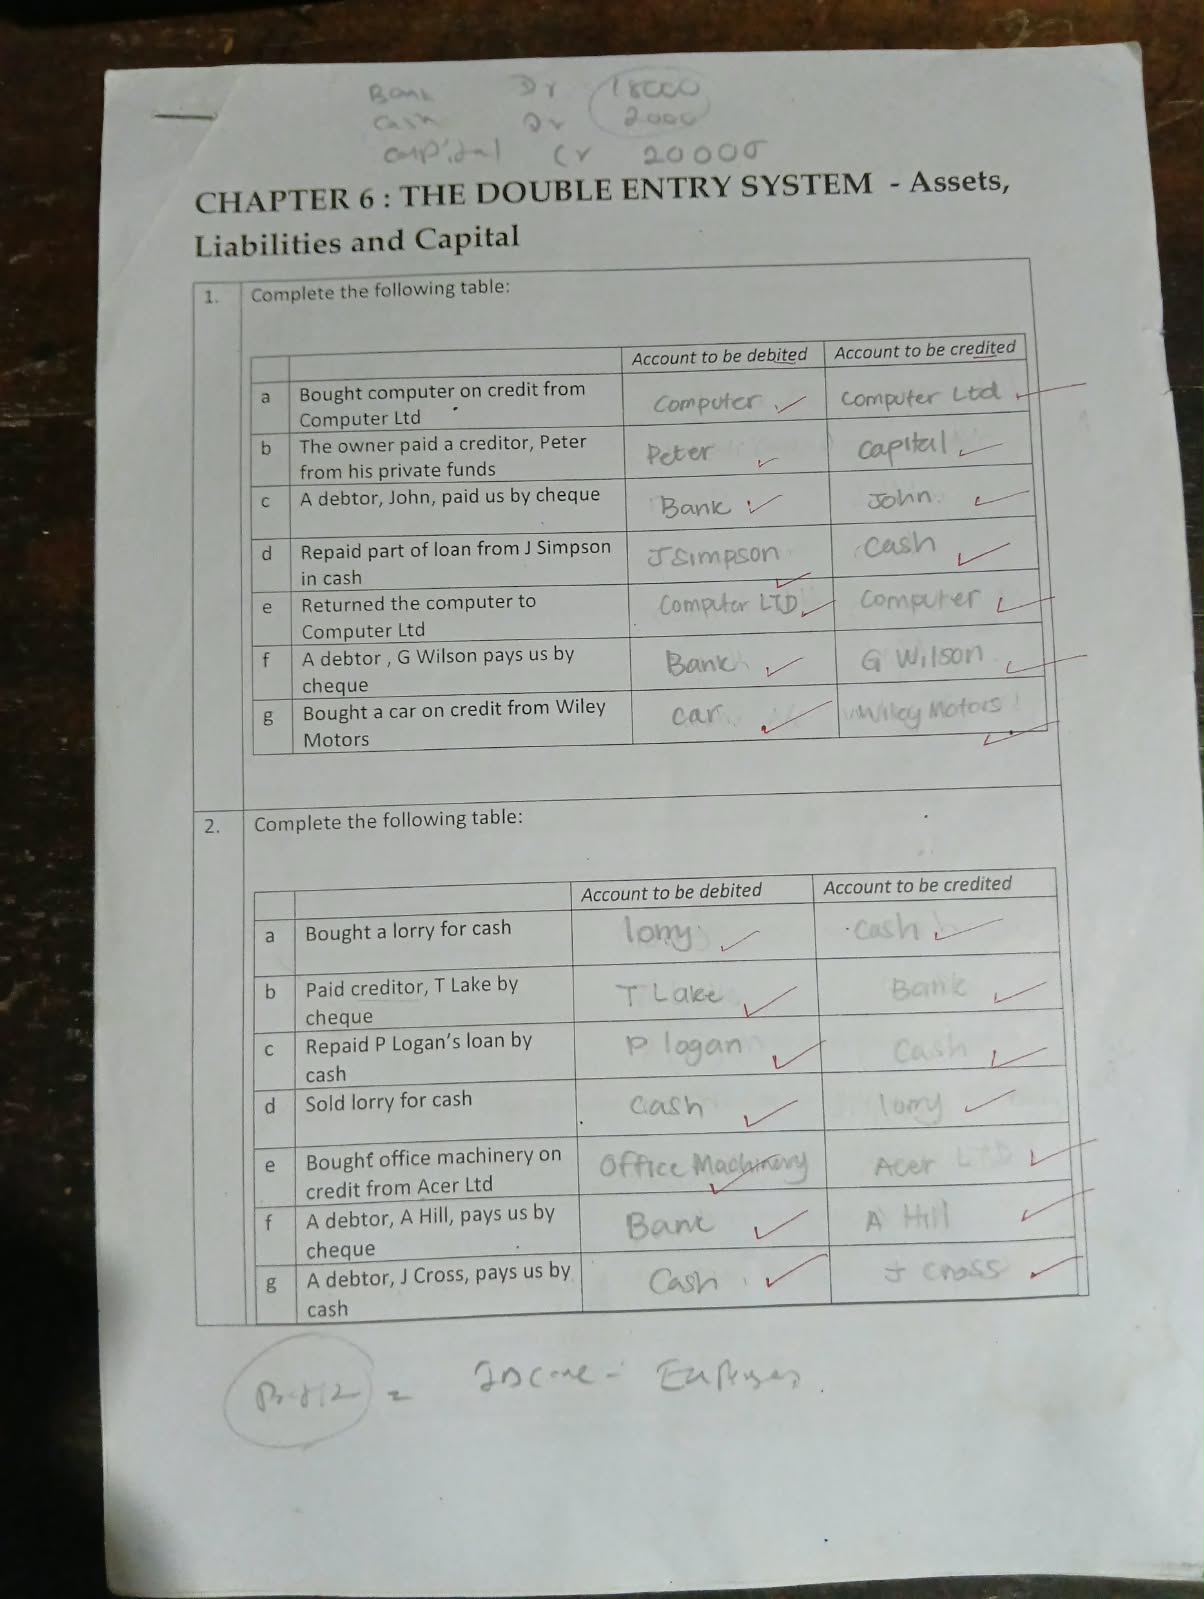 Bank Dr 18000
Cash Dr 2000
Capital Cr 20000
CHAPTER 6 : THE DOUBLE ENTRY SYSTEM - Assets,
Liabilities and Capital
1. Complete the following table:
Account to be debited Account to be credited
a Bought computer on credit from Computer Ltd Computer Computer Ltd
b The owner paid a creditor, Peter from his private funds Peter Capital
c A debtor, John, paid us by cheque Bank John
d Repaid part of loan from J Simpson in cash J Simpson Cash
e Returned the computer to Computer Ltd Computer LTD Computer
f A debtor , G Wilson pays us by cheque Bank G Wilson
g Bought a car on credit from Wiley Motors car Wiley Motors
2. Complete the following table:
Account to be debited Account to be credited
a Bought a lorry for cash lorry cash
b Paid creditor, T Lake by cheque T Lake Bank
c Repaid P Logan's loan by cash P logan Cash
d Sold lorry for cash Cash lorry
e Bought office machinery on credit from Acer Ltd Office Machinery Acer LTD
f A debtor, A Hill, pays us by cheque Bank A Hill
g A debtor, J Cross, pays us by cash Cash J Cross
= Income -